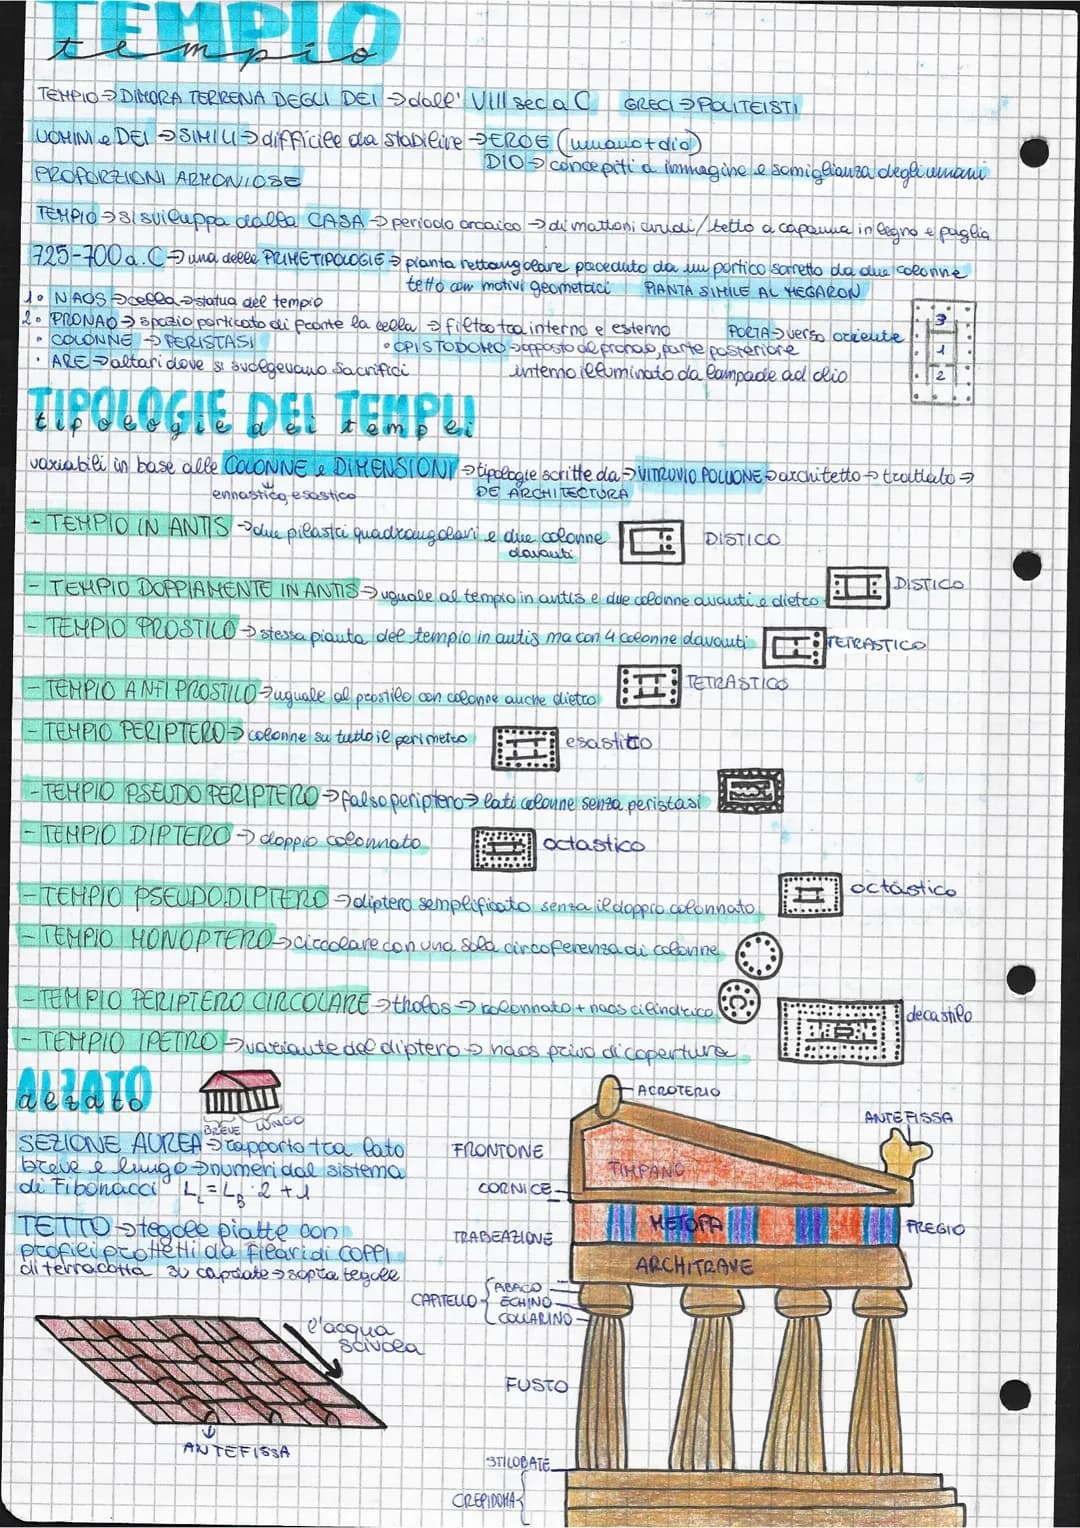 TEMPIO
tempio
TEMPIO → DIMORA TERRENA DEGLI DEI → dall' VIII sec a C GRECI → POLITEISTI
UOMINI e DEI → SIMILI → difficile da stabilire → EROE (umano + dio)
DIO → concepiti a immagine e somiglianza degli umani
PROPORZIONI ARMONIOSE
TEMPIO → si sviluppa dalla CASA → periodo arcaico → di mattoni crudi / tetto a capanna in legno e paglia
725-700 a.C → una delle PRIME TIPOLOGIE → pianta rettangolare preceduto da un portico sorretto da due colonne
tetto con motivi geometrici PIANTA SIMILE AL MEGARON
1. NAOS → cella → statua del tempio
2. PRONAO → spazio porticato di fronte la cella → filtro tra interno e esterno PORTA → verso oriente
• COLONNE → PERISTASI • OPISTODOMO → opposto del pronao, parte posteriore
• ARE → altari dove si svolgevano sacrifici interno illuminato da lampade ad olio
3
1
2
TIPOLOGIE DEI TEMPLI
tipologie dei templi
variabili in base alle COLONNE e DIMENSIONI → tipologie scritte da → VITRUVIO POLLIONE → architetto → trattato →
ennastico, esastico DE ARCHITECTURA
- TEMPIO IN ANTIS → due pilastri quadrangolari e due colonne DISTICO
davanti
- TEMPIO DOPPIAMENTE IN ANTIS → uguale al tempio in antis e due colonne avanti e dietro DISTICO
- TEMPIO PROSTILO → stessa pianta del tempio in antis ma con 4 colonne davanti TETRASTICO
- TEMPIO ANFIPROSTILO → uguale al prostilo con colonne anche dietro TETRASTICO
- TEMPIO PERIPTERO → colonne su tutto il perimetro esastico
- TEMPIO PSEUDO PERIPTERO → falso periptero → lati colonne senza peristasi
- TEMPIO DIPTERO → doppio colonnato octastico
- TEMPIO PSEUDODIPTERO → diptero semplificato senza il doppio colonnato octastico
- TEMPIO MONOPTERO → circolare con una sola circoferenza di colonne
- TEMPIO PERIPTERO CIRCOLARE → tholos → colonnato + naos cilindrico decastilo
- TEMPIO IPETRO → variante del diptero → naos privo di copertura
ALZATO
alzato
BREVE LUNGO
SEZIONE AUREA → rapporto tra lato
breve e lungo → numeri dal sistema
di Fibonacci L L = L B · 2 + 1
TETTO → tegole piatte con
profili protetti da filari di COPPI
di terracotta su capriate → sopra tegole
l'acqua
scivola
ANTEFISSA
ACROTERIO
ANTEFISSA
FRONTONE
TIMPANO
CORNICE
METOPA
FREGIO
TRABEAZIONE
ARCHITRAVE
CAPITELLO { ABACO
ECHINO
COLLARINO
FUSTO
STILOBATE
CREPIDOMA {